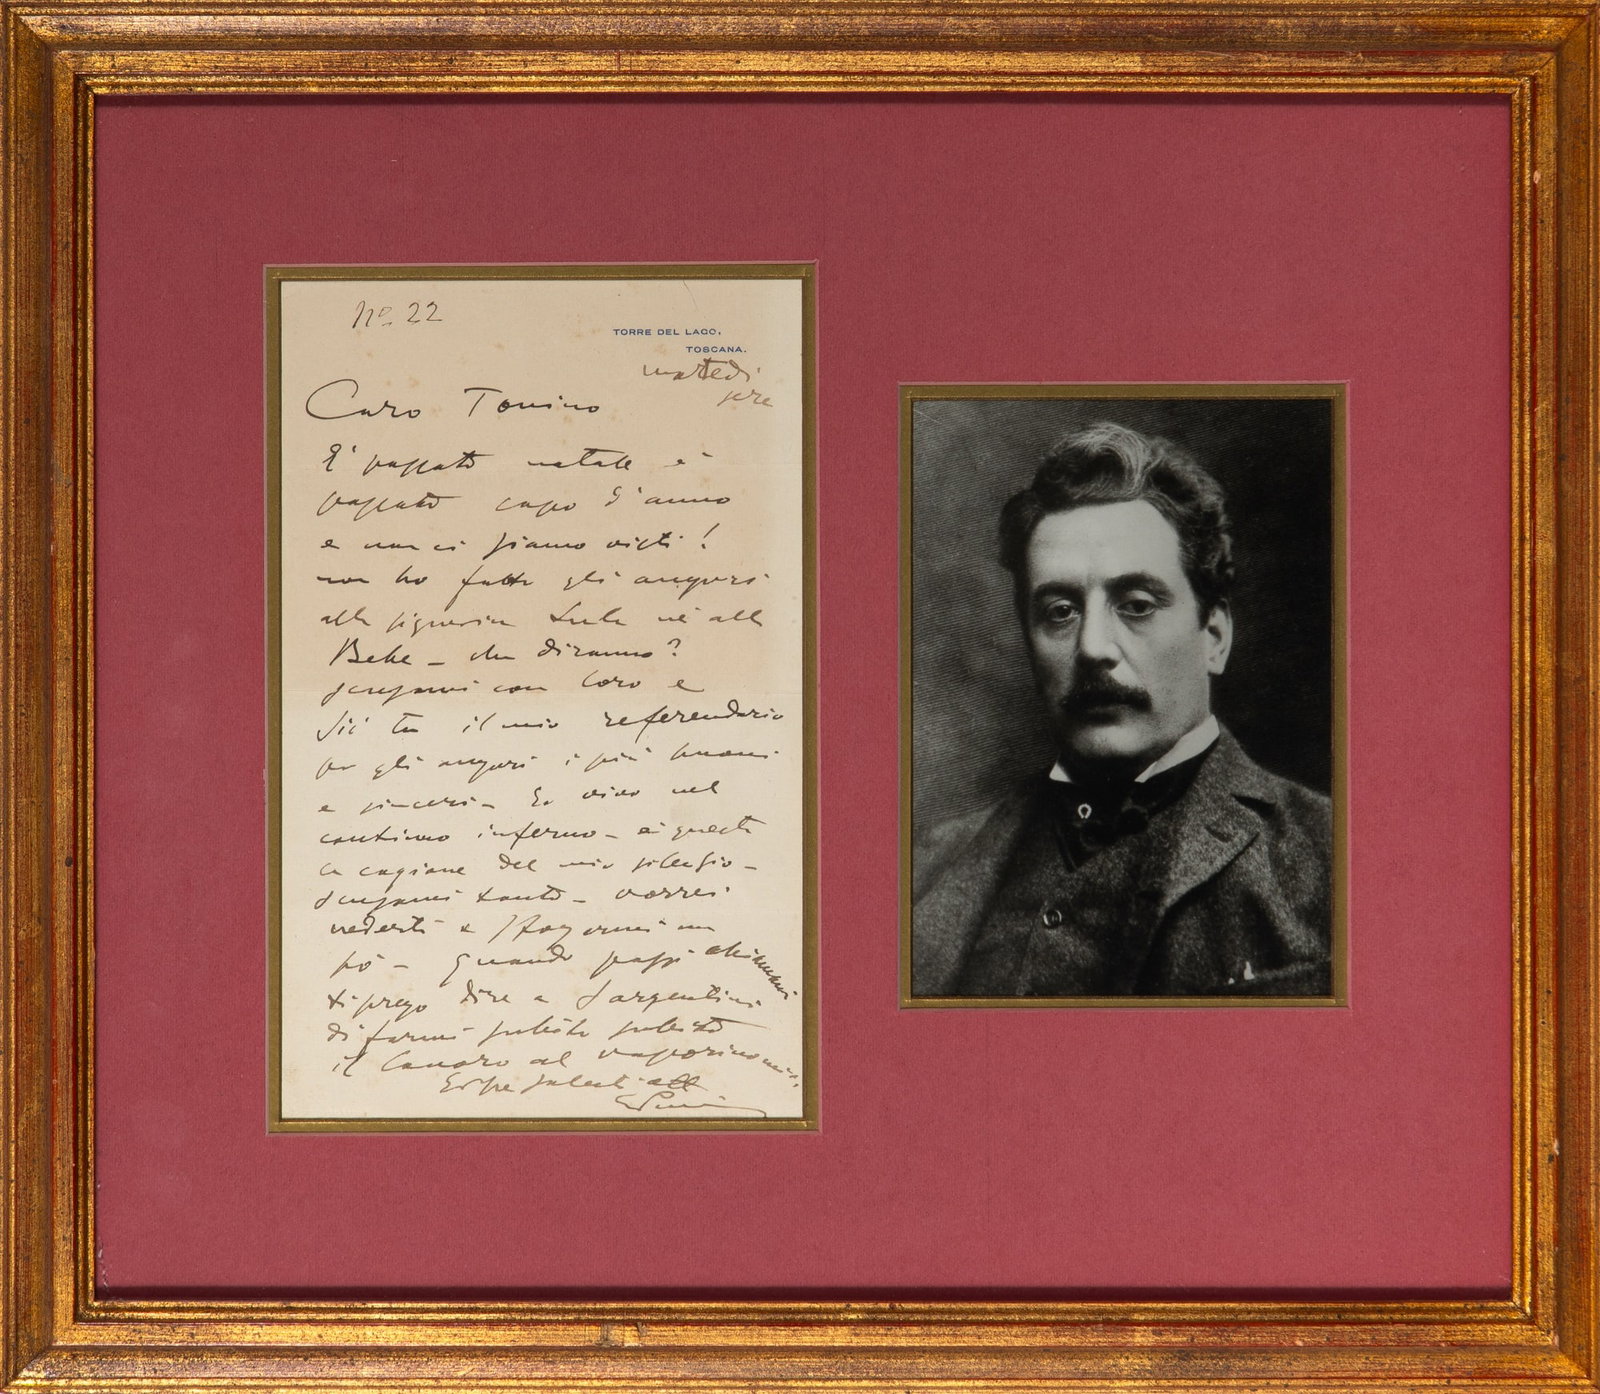 No. 22
TORRE DEL LAGO,
TOSCANA.
martedi
sera
Caro Tonino
E' passato natale è
passato capo d'anno
e non ci siamo visti!
non ho fatto gli auguri
alla signorina né alla
Bebe – che diranno?
scusami con loro e
sii tu il mio referendario
per gli auguri i più buoni
e sinceri – Io vivo nel
continuo inferno – è questa
la cagione del mio silenzio –
scusami tanto – vorrei
vederti e un
pò – Quando passi chiamami
ti prego dire a Sargentini
di farmi subito subito
il lavoro al vaporino
saluti aff
GPuccini